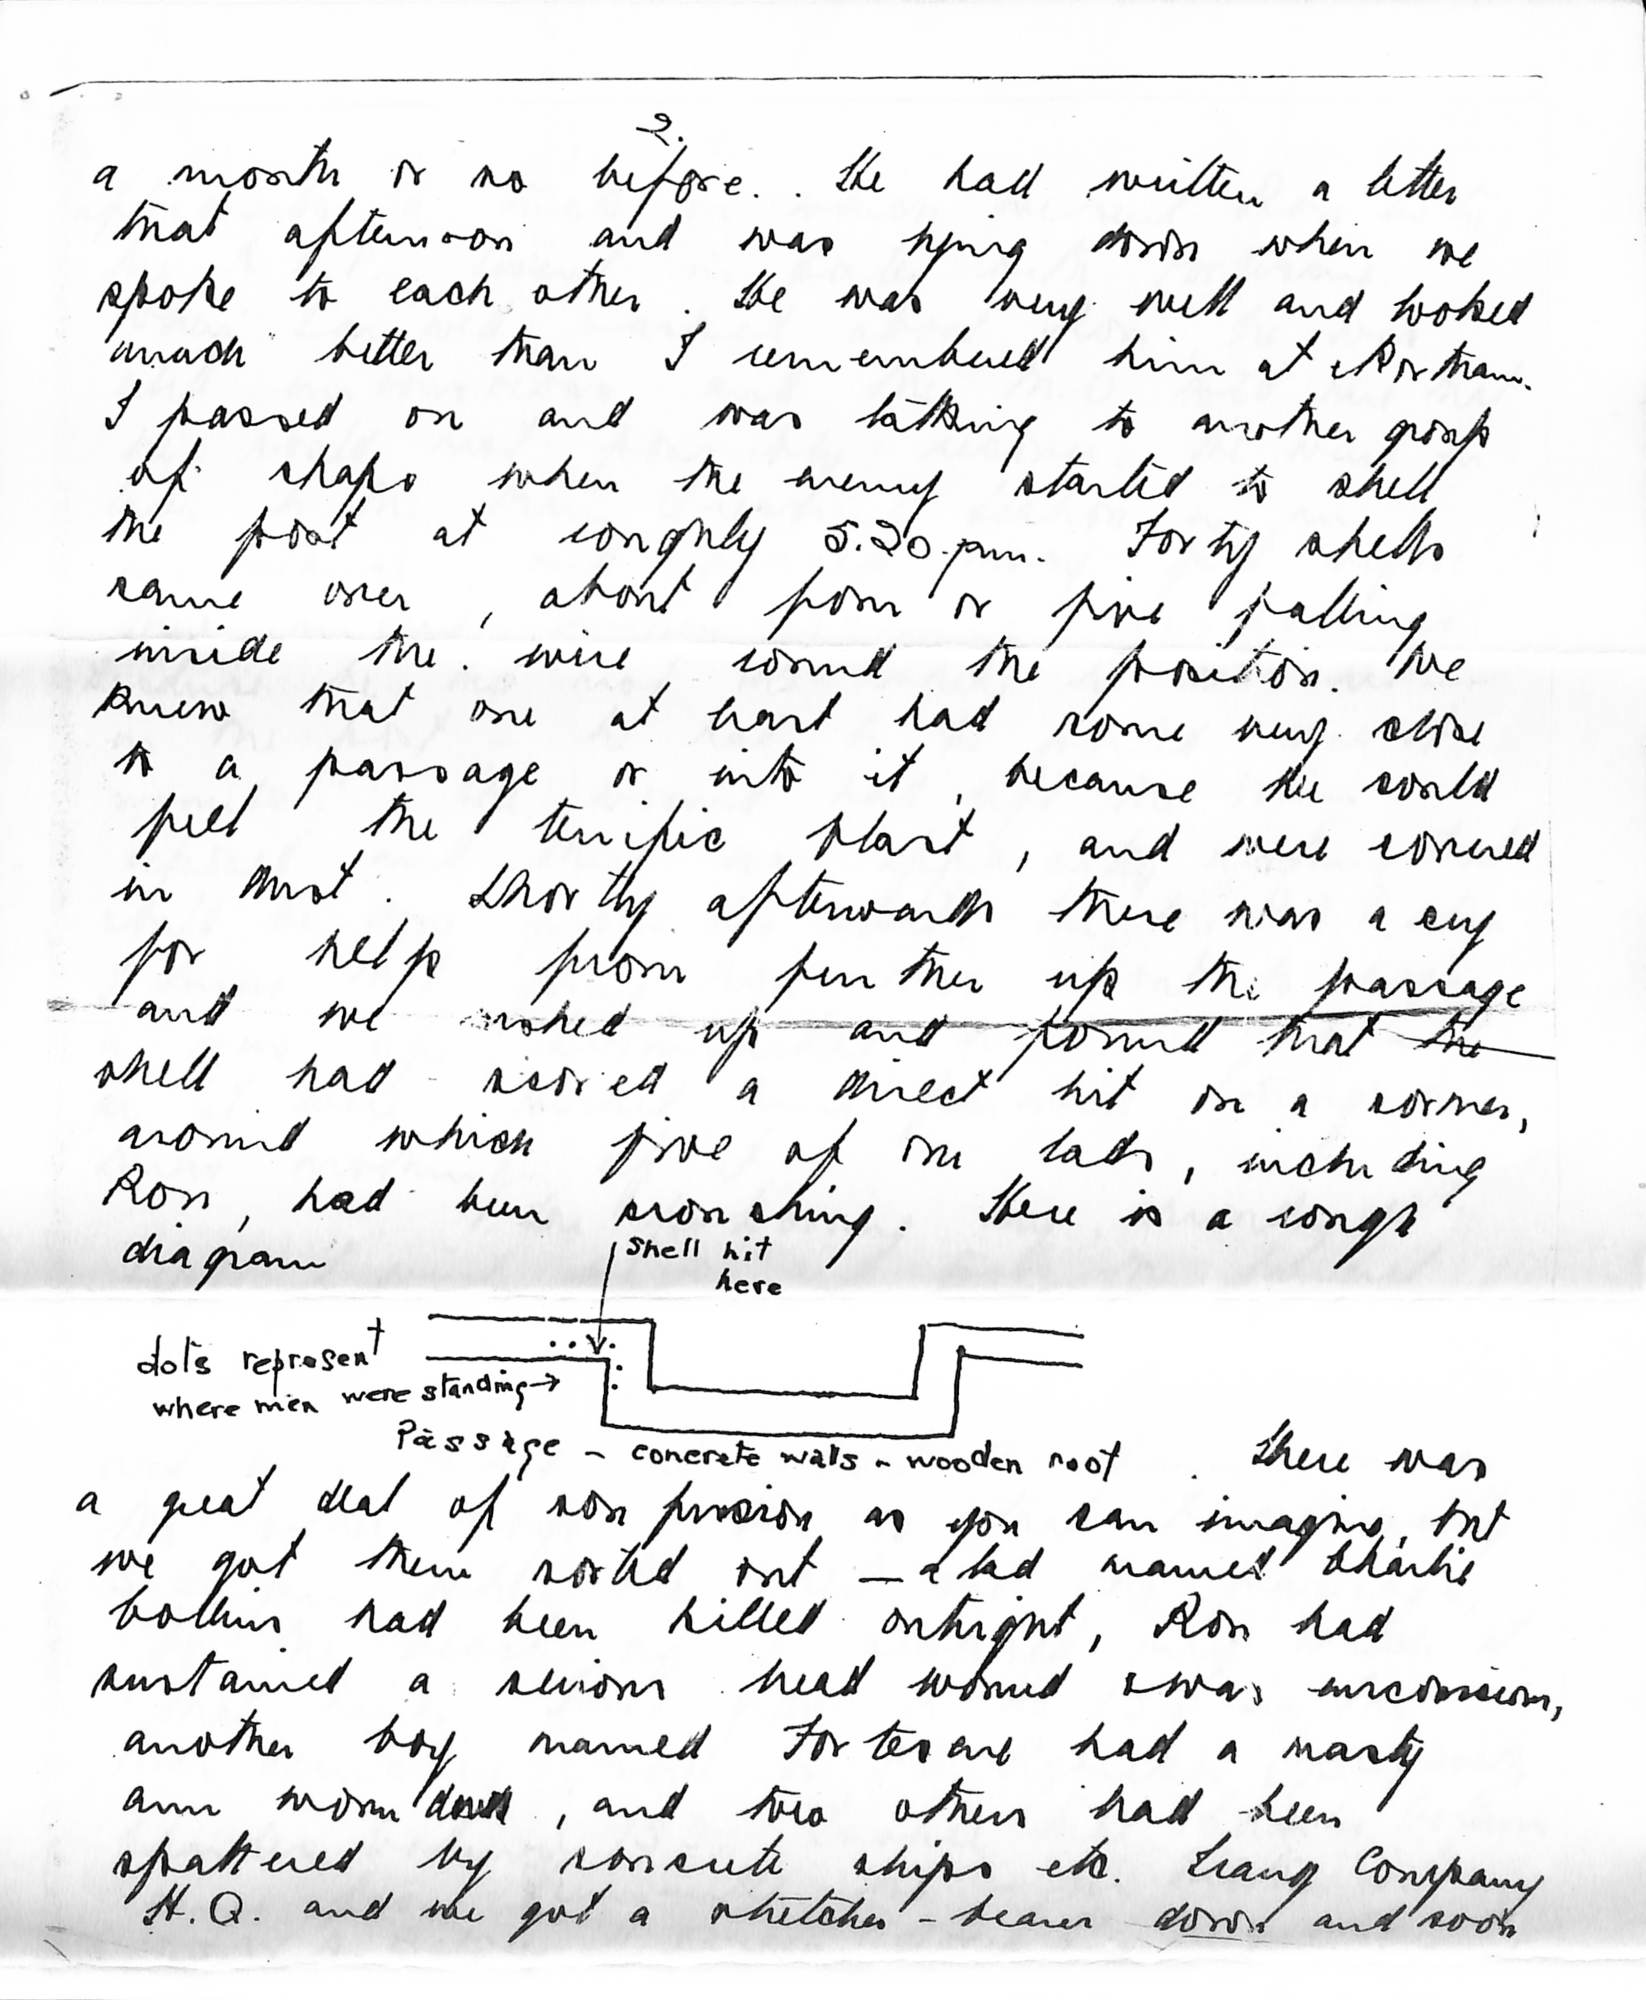 2.
a month or so before. He had written a letter
that afternoon and was lying down when we
spoke to each other. He was very well and looked
much better than I remembered him at Northam.
I passed on and was talking to another group
of chaps when the enemy started to shell
the post at roughly 5.20 pm. Forty shells
came over, about four or five falling
inside the wire round the position. We
knew that one at least had come very close
to a passage or into it, because we could
feel the terrific blast, and were covered
in dust. Shortly afterwards there was a cry
for help from further up the passage
and we rushed up and found that the
shell had scored a direct hit on a corner,
around which five of our lads, including
Ron, had been crouching. Here is a rough
diagram
Shell hit
here
dots represent
where men were standing →
Passage - concrete walls - wooden roof. There was
a great deal of confusion as you can imagine, but
we got them sorted out — a lad named Charlie
Collins had been killed outright, Ron had
sustained a serious head wound & was unconscious,
another boy named Fortescue had a nasty
arm wound, and two others had been
spattered by concrete chips etc. I rang Company
H.Q. and we got a stretcher-bearer down and soon